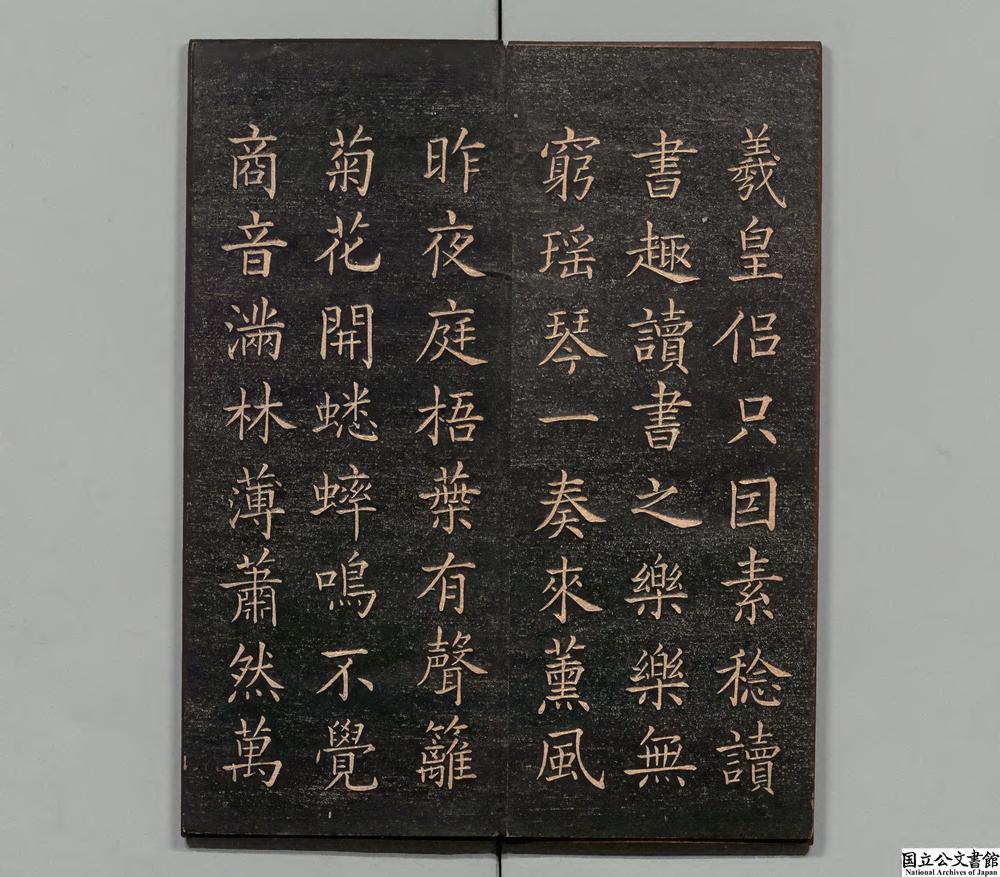 羲皇侣只因素稔讀
書趣讀書之樂樂無
窮瑶琴一奏來薰風
昨夜庭梧葉有聲籬
菊花開蟋蟀鳴不覺
商音滿林薄蕭然萬
国立公文書館
National Archives of Japan